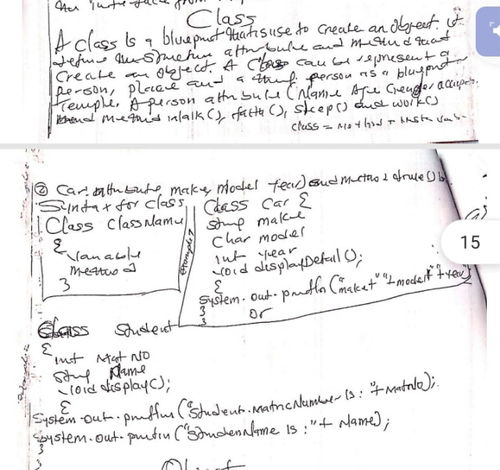 the interface from
Class
A class is a blueprint that is use to create an object. it
define the instruction attribute and method that
create an object. A class can be represent a
person, place and a thing. person as a blueprint
Temple. A person attribute (Name Age Gender occupation
and method in walk(), talk(), sleep() and work()
class = method + insta vari
② Car: attribute, make, model year) and method drive() b
Syntax for class
Class ClassName
{
Variable
method
}
Example 1
Class Car {
String make
Char model
int year
void displayDetail();
{
System.out.println("make" + "model" + year)
}
}
or
15
Class Student
{
int Mat No
String Name
void display();
{
System.out.println("Student.MatricNumber is: "+ MatNo);
System.out.println("Studen Name is: "+ Name);
}
}
Object